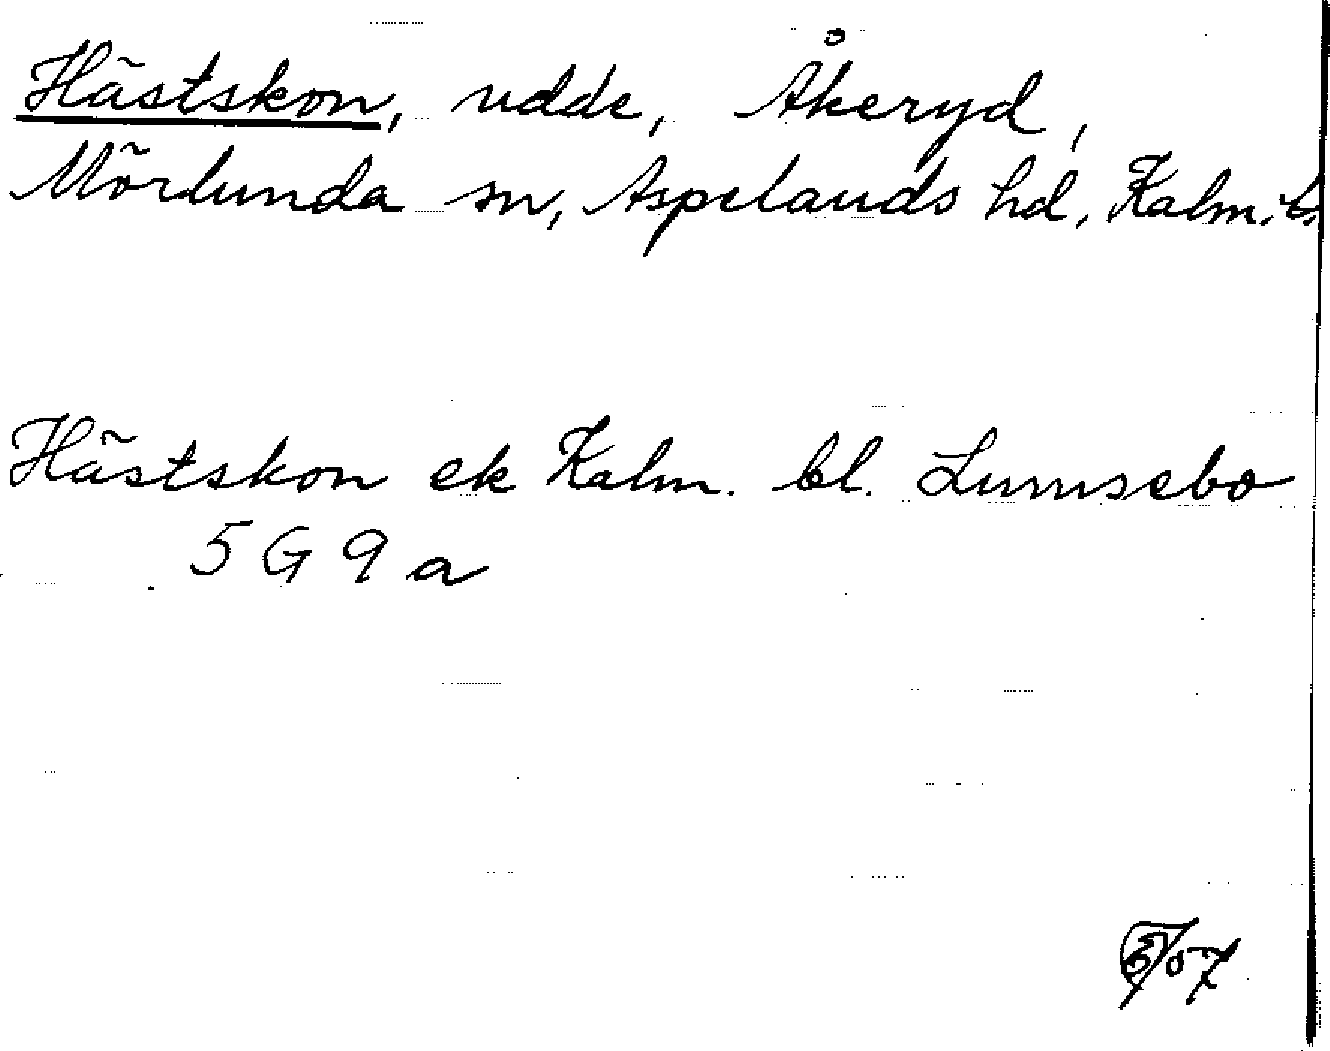 Hästskon, udde, Åkeryd,
Mörlunda sn, Aspelands hd, Kalm. l.
Hästskon ek Kalm. bl. Lumsebo
5 G 9 a